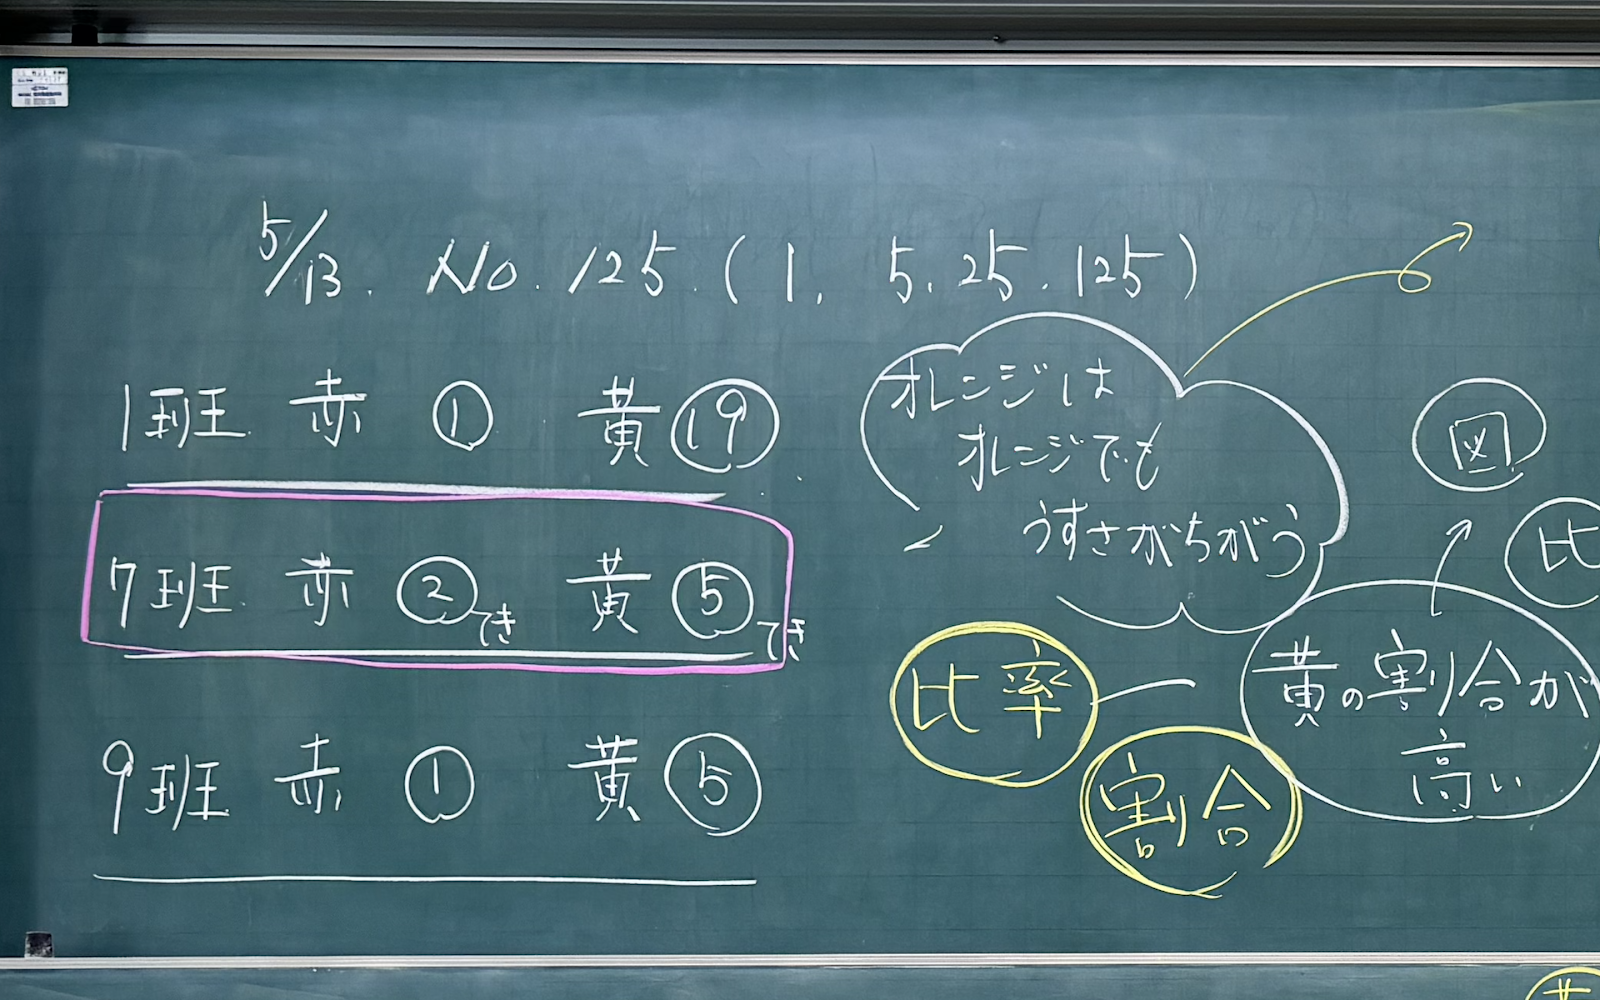 5/13. No.125.(1. 5. 25. 125)
1班 赤 ① 黄 ⑲
7班 赤 ②てき 黄 ⑤てき
9班 赤 ① 黄 ⑤
オレンジは
オレンジでも
うすさがちがう
図
比
比率
割合
黄の割合が
高い